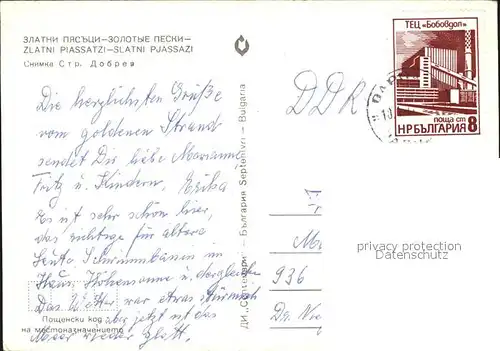 ЗЛАТНИ ПЯСЪЦИ—ЗОЛОТЫЕ ПЕСКИ—
ZLATNI PIASSATZI—SLATNI PJASSAZI
Снимка Стр. Добрев
Die herzlichsten Grüße
vom goldenen Strand
sendet Dir liebe Marianne,
Fritz u. Kindern, Erika
Es ist sehr schön hier,
das richtige für ältere
Leute Schwimmbassin im
Haus, Höhensonne u. dergleichen
Das Wetter war etwas stürmisch
aber jetzt ist das
Meer wieder glatt.
Пощенски код
на местоназначението
ДИ „Септември" — България Septemvri — Bulgaria
DDR
ТЕЦ „Бобовдол"
поща ст
НР БЪЛГАРИЯ 8
936
privacy protection
Datenschutz